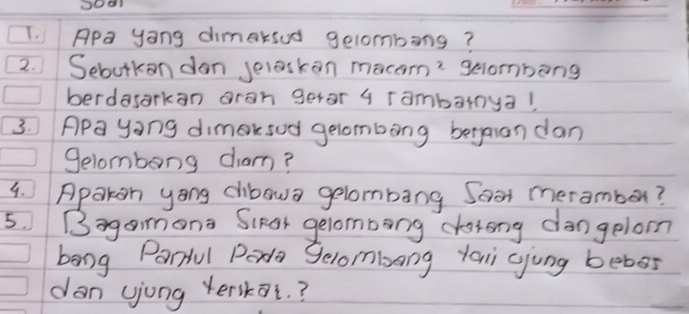 Soal
1. Apa yang dimaksud gelombang?
2. Sebutkan dan jelaskan macam² gelombang
berdasarkan arah getar & rambatnya!
3. Apa yang dimaksud gelombang berjalan dan
gelombang diam?
4. Apakah yang dibawa gelombang saat merambat?
5. Bagaimana sifat gelombang datang dan gelom
bang Pantul Pada gelombang tali ujung bebas
dan ujung terikat.?